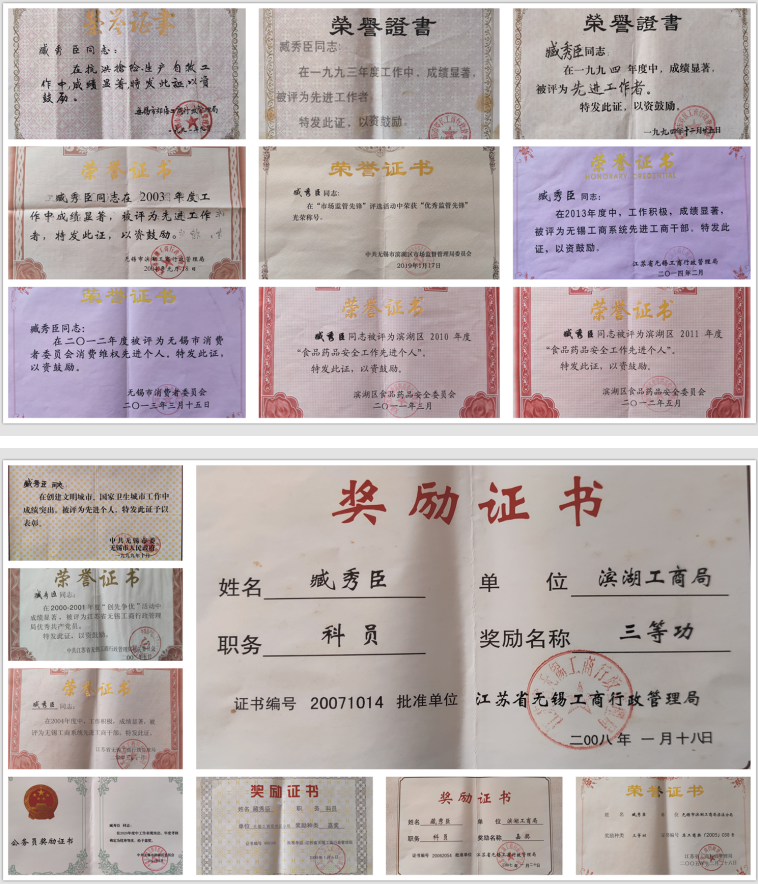 荣誉证书
臧秀臣同志:
在抗洪抢险生产自救工
作中成绩显著,特发此证,以资
鼓励。
荣誉證書
臧秀臣同志:
在一九九三年度工作中,成绩显著,
被评为先进工作者
特发此证,以资鼓励.
荣誉證書
臧秀臣同志
在一九九四年度中,成绩显著,
被评为先进工作者。
特发此证,以资鼓励。
一九九四年十二月廿五日
荣誉证书
臧秀臣同志在2003年度工
作中成绩显著,被评为先进工作
者,特发此证,以资鼓励。
无锡市滨湖工商行政管理局
荣誉证书
臧秀臣同志:
在“市场监管先锋”评选活动中荣获“优秀监管先锋”
光荣称号。
中共无锡市滨湖区市场监督管理局委员会
2019年1月17日
荣誉证书
HONORARY CREDENTIAL
臧秀臣同志:
在2013年度中,工作积极,成绩显著,
被评为无锡工商系统先进工商干部。特发此
证,以资鼓励。
江苏省无锡工商行政管理局
二〇一四年二月
荣誉证书
臧秀臣同志:
在二〇一二年度被评为无锡市消费
者委员会消费维权先进个人。特发此证,
以资鼓励。
无锡市消费者委员会
二〇一三年三月十五日
荣誉证书
臧秀臣同志被评为滨湖区2010年度
“食品药品安全工作先进个人”。
特发此证,以资鼓励。
滨湖区食品药品安全委员会
二〇一一年三月
荣誉证书
臧秀臣同志被评为滨湖区2011年度
“食品药品安全工作先进个人”。
特发此证,以资鼓励。
滨湖区食品药品安全委员会
二〇一二年五月
臧秀臣同志
在创建文明城市、国家卫生城市工作中
成绩突出,被评为先进个人,特发此证予以
表彰。
中共无锡市委
无锡市人民政府
奖励证书
姓名 臧秀臣
单位 滨湖工商局
职务 科员
奖励名称 三等功
证书编号 20071014 批准单位 江苏省无锡工商行政管理局
二00八年一月十八日
荣誉证书
臧秀臣同志:
在2000-2001年度“创先争优”活动中
成绩显著,被评为江苏省无锡工商行政管理
局优秀共产党员。
特发此证,以资鼓励。
荣誉证书
臧秀臣同志:
在2004年度中,工作积极,成绩显著,被
评为无锡工商系统先进工商干部。特发此证,
以资鼓励。
公务员奖励证书
奖励证书
姓名 臧秀臣 职务 科员
奖励种类 嘉奖
奖励证书
姓名 臧秀臣 单位 滨湖工商局
职务 科员 奖励名称 嘉奖
江苏省无锡工商行政管理局
荣誉证书
姓名 臧秀臣
奖励种类 三等功